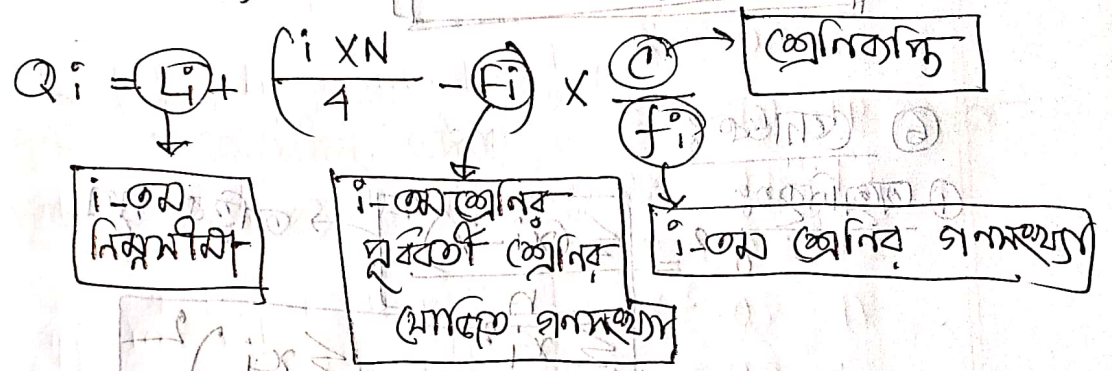 Qi = Li + (i×N/4 - Fi) × c/fi
শ্রেনিব্যপ্তি
i-তম
নিম্নসীমা
i-তম শ্রেনির
পূর্ববর্তী শ্রেনির
যোজিত গনসংখ্যা
i-তম শ্রেনির গনসংখ্যা